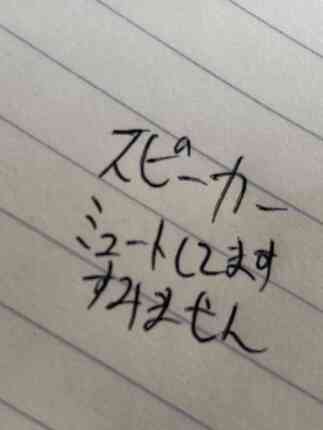 スピーカー
ミュートしてます
すみません